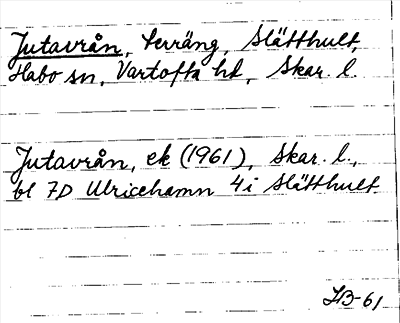 Jutavrån, terräng, Slätthult,
Habo sn, Vartofta hd, Skar. l.
Jutavrån, ek (1961), Skar. l.,
bl 7D Ulricehamn 4i Slätthult
IB-61